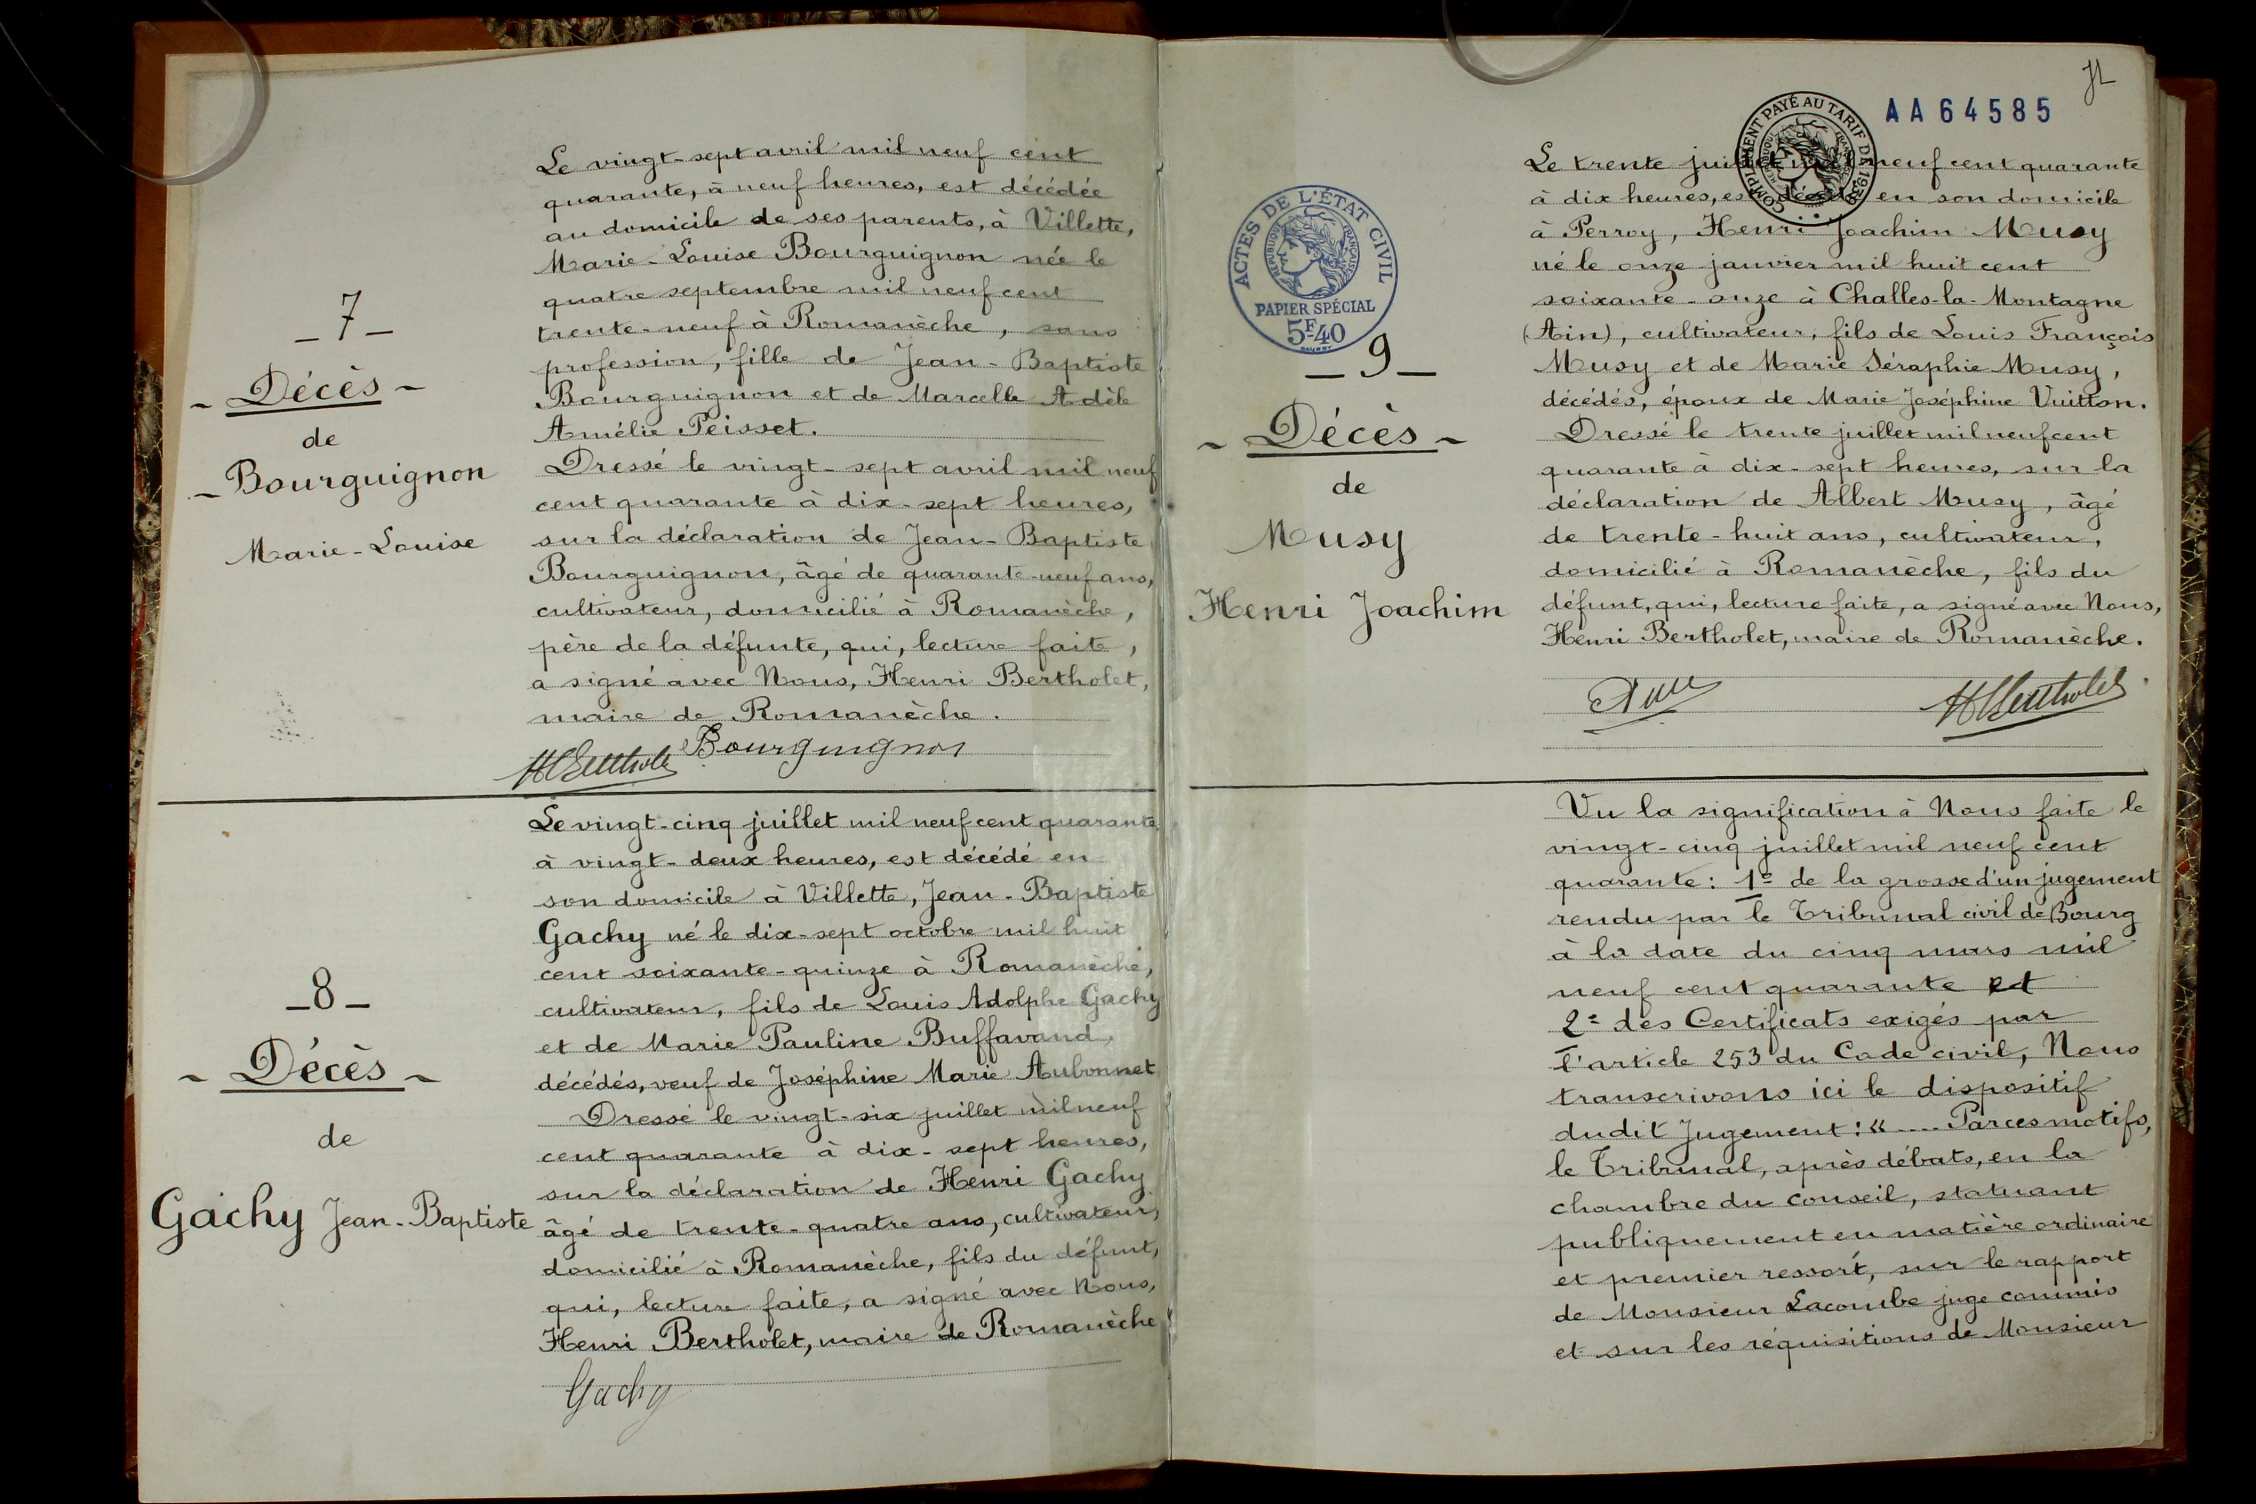 _ 7 _
- Décès -
de
_ Bourguignon
Marie-Louise
Le vingt-sept avril mil neuf cent
quarante, à neuf heures, est décédée
au domicile de ses parents, à Villette,
Marie-Louise Bourguignon née le
quatre septembre mil neuf cent
trente-neuf à Romanèche, sans
profession, fille de Jean-Baptiste
Bourguignon et de Marcelle Adèle
Amélie Peisset.
Dressé le vingt-sept avril mil neuf
cent quarante à dix-sept heures,
sur la déclaration de Jean-Baptiste
Bourguignon, âgé de quarante-neuf ans,
cultivateur, domicilié à Romanèche,
père de la défunte, qui, lecture faite,
a signé avec Nous, Henri Bertholet,
maire de Romanèche.
HBertholet Bourguignon
_ 8 _
- Décès -
de
Gachy Jean-Baptiste
Le vingt-cinq juillet mil neuf cent quarante
à vingt-deux heures, est décédé en
son domicile à Villette, Jean-Baptiste
Gachy né le dix-sept octobre mil huit
cent soixante-quinze à Romanèche,
cultivateur, fils de Louis Adolphe Gachy
et de Marie Pauline Buffavand,
décédés, veuf de Joséphine Marie Aubonnet
Dressé le vingt-six juillet mil neuf
cent quarante à dix-sept heures,
sur la déclaration de Henri Gachy
âgé de trente-quatre ans, cultivateur,
domicilié à Romanèche, fils du défunt,
qui, lecture faite, a signé avec Nous,
Henri Bertholet, maire de Romanèche
Gachy
AA64585
COMPLEMENT PAYÉ AU TARIF DE 1938
ACTES DE L'ÉTAT CIVIL
RÉPUBLIQUE FRANÇAISE
PAPIER SPÉCIAL
5F40
_ 9 _
- Décès -
de
Musy
Henri Joachim
Le trente juillet mil neuf cent quarante
à dix heures, est décédé en son domicile
à Perroy, Henri Joachim Musy
né le onze janvier mil huit cent
soixante-onze à Challes-la-Montagne
(Ain), cultivateur, fils de Louis François
Musy et de Marie Séraphie Musy,
décédés, époux de Marie Joséphine Vuitton.
Dressé le trente juillet mil neuf cent
quarante à dix-sept heures, sur la
déclaration de Albert Musy, âgé
de trente-huit ans, cultivateur,
domicilié à Romanèche, fils du
défunt, qui, lecture faite, a signé avec Nous,
Henri Bertholet, maire de Romanèche.
HBertholet
Vu la signification à Nous faite le
vingt-cinq juillet mil neuf cent
quarante : 1º de la grosse d'un jugement
rendu par le Tribunal civil de Bourg
à la date du cinq mars mil
neuf cent quarante et
2º des Certificats exigés par
l'article 253 du Code civil, Nous
transcrivons ici le dispositif
dudit Jugement : « .... Par ces motifs,
le Tribunal, après débats, en la
chambre du conseil, statuant
publiquement en matière ordinaire
et premier ressort, sur le rapport
de Monsieur Lacombe juge commis
et sur les réquisitions de Monsieur